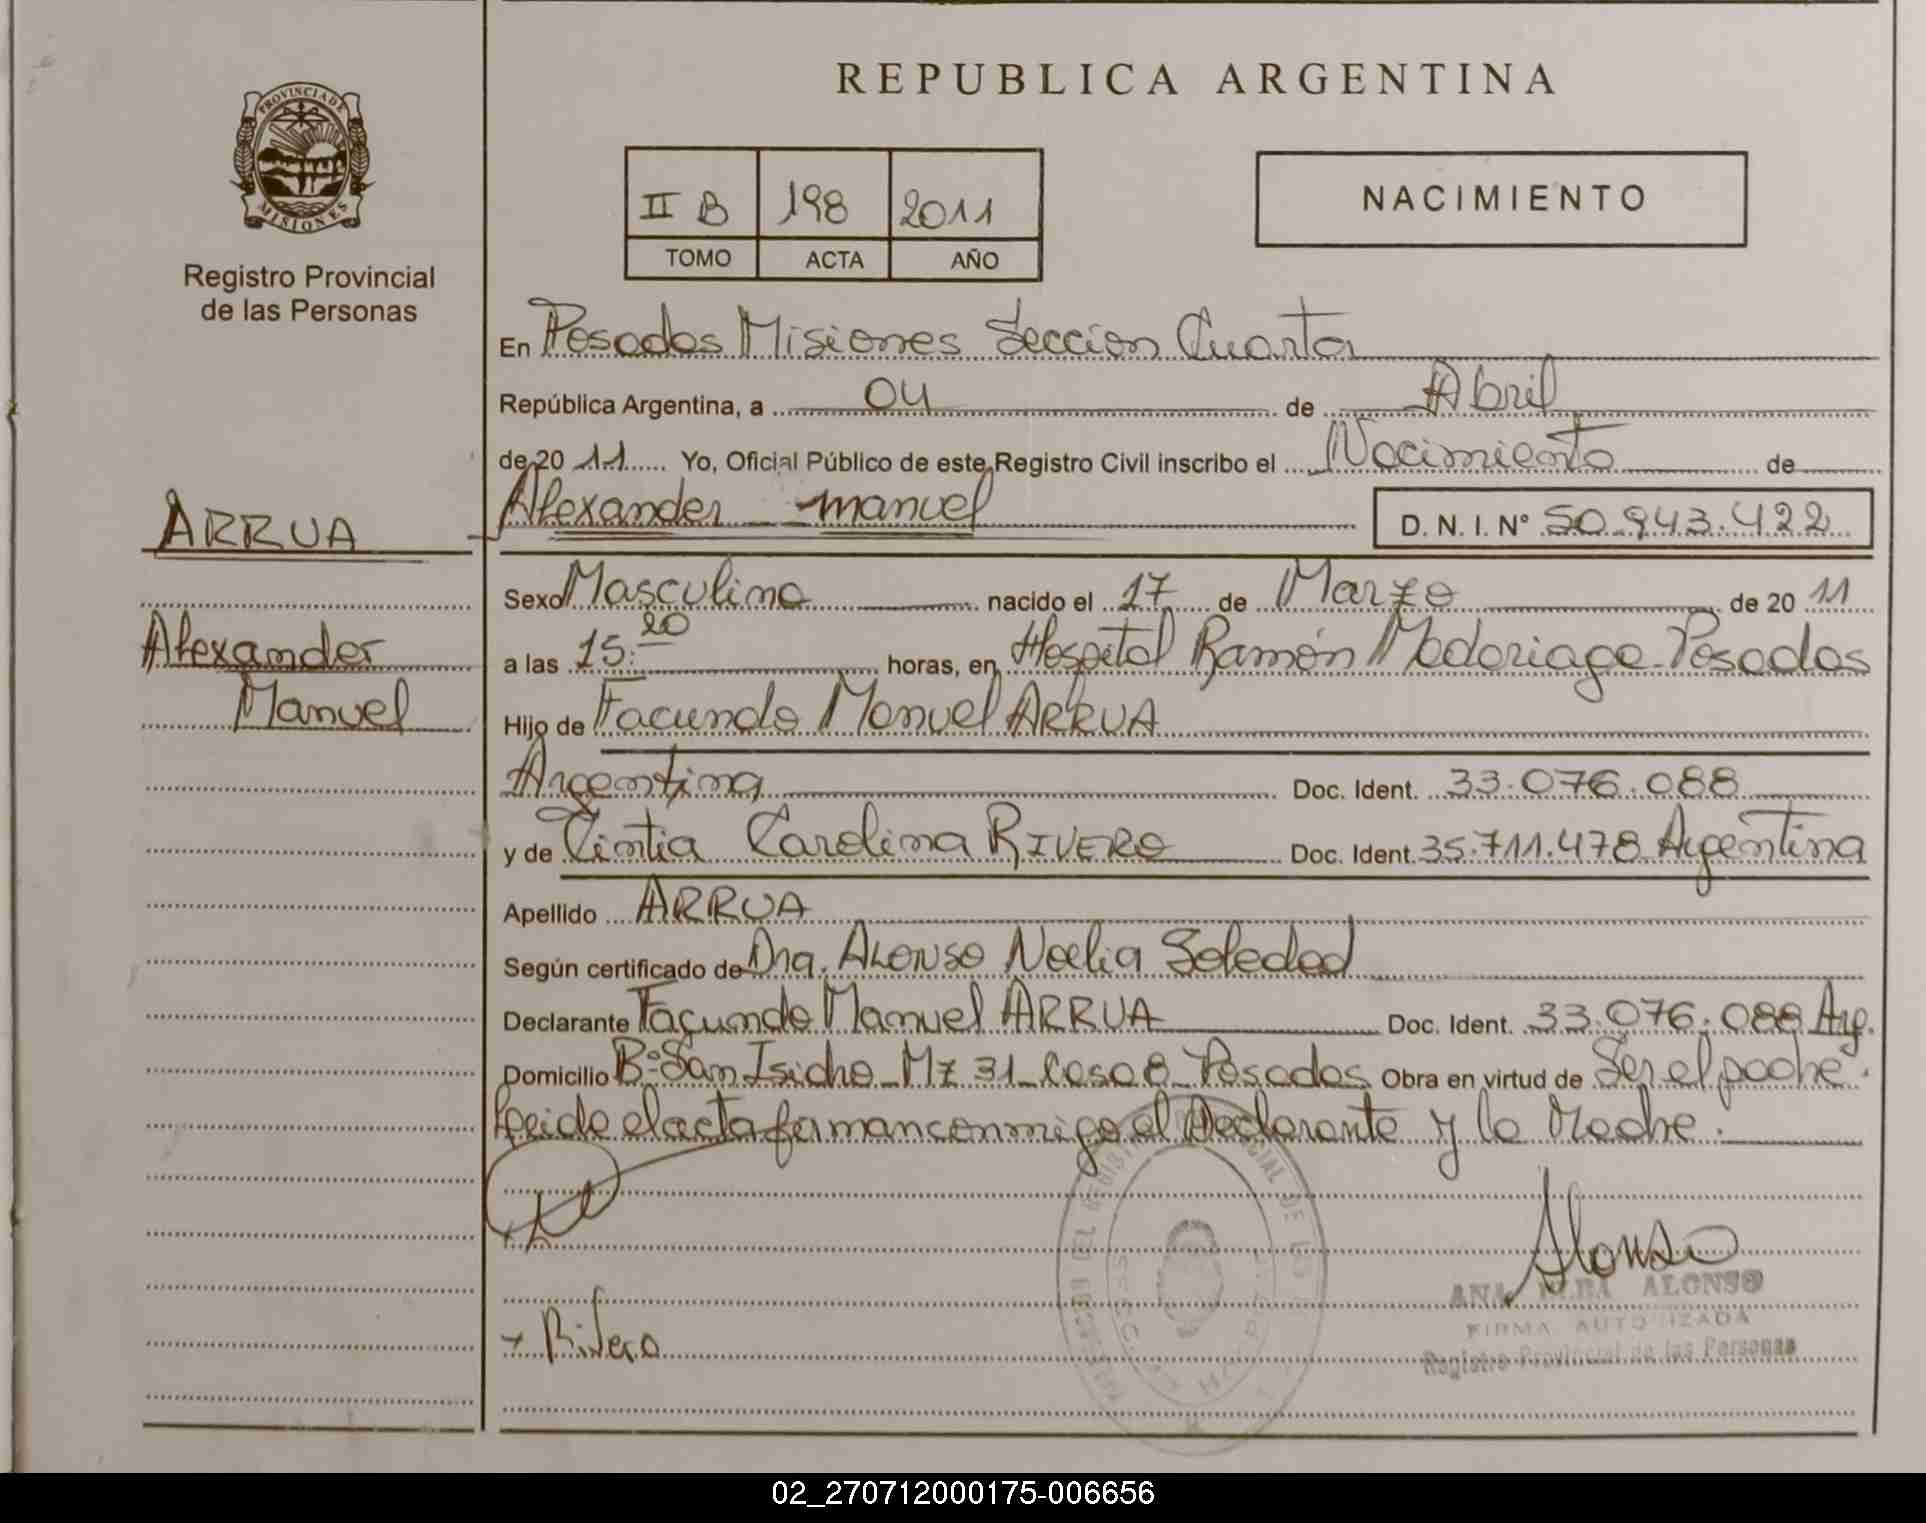 REPUBLICA ARGENTINA
PROVINCIA DE
MISIONES
Registro Provincial
de las Personas
II B 198 2011
TOMO ACTA AÑO
NACIMIENTO
En Posadas Misiones Seccion Cuarta
República Argentina, a 04 de Abril
de 20 11 Yo, Oficial Público de este Registro Civil inscribo el Nacimiento de
ARRUA
Alexander Manuel
Alexander manuel D. N. I. Nº 50.943.422
Sexo Masculino nacido el 17 de Marzo de 20 11
a las 15:20 horas, en Hospital Ramón Madariaga Posadas
Hijo de Facundo Manuel ARRUA
Argentina Doc. Ident. 33.076.088
y de Cintia Carolina RIVERO Doc. Ident. 35.711.478 Argentina
Apellido ARRUA
Según certificado de Dra. ALONSO Noelia Soledad
Declarante Facundo Manuel ARRUA Doc. Ident. 33.076.088 Arg.
Domicilio Bº San Isidro Mz 31 Casa 8 Posadas Obra en virtud de Ser el padre.
Leido el acta firman conmigo el Declarante y la Madre.
Alonso
ANA ELBA ALONSO
FIRMA AUTORIZADA
Registro Provincial de las Personas
x Rivero
02_270712000175-006656